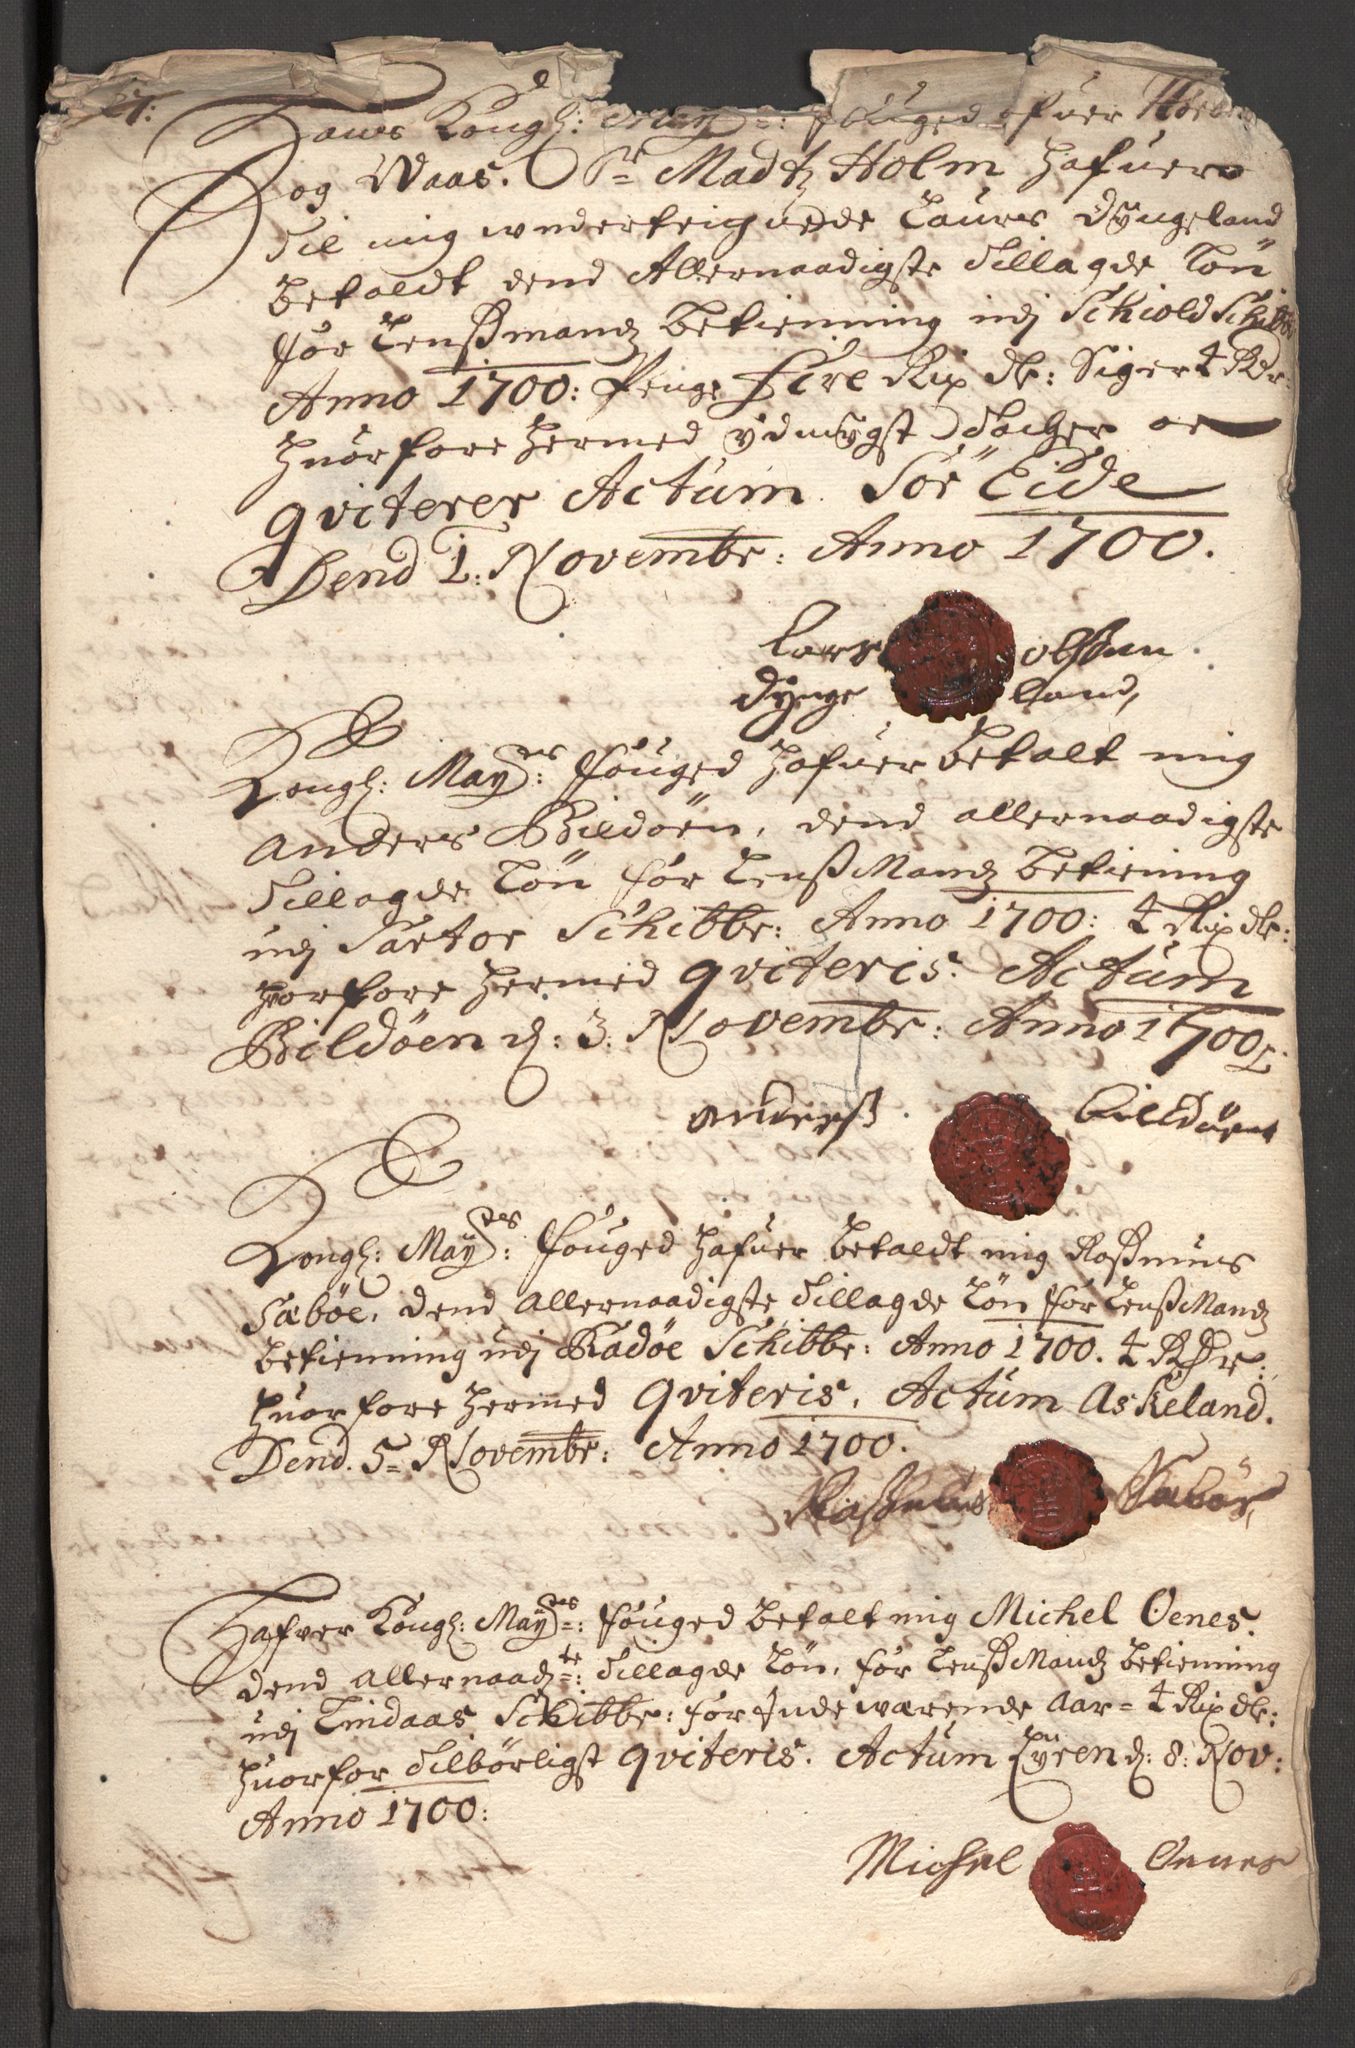 27:
Hans Kongl: May=: fouged ofuer Nord
og Waas. Sr= Madtz Holm hafuer
til mig underteignede Laurs Dyngeland
betaldt dend Allernaadigste tillagde Lön
for Lenßmandz betienning udj Schiold Schib:
Anno 1700: Penge Fire Rix dlr: Siger 4 Rdr:
huorfore hermed ydmygst tacher oc
qviterer Actum Sör Eide
Dend 1: Novembr: Anno 1700.
Lars olßen
Dynge land,
Kongl: Mayts: fouged hafuer betalt mig
Anders Bildöen, dend allernaadigste
tillagde Lön for Lenß Mandz betiening
udj Sartor Schibbr: Anno 1700: 4 Rix dlr:
huorfore hermed qviteris. Actum
Bildöen d: 3: Novembr: Anno 1700
anderß billdöen
Kongl: Mayts: fouged hafuer betaldt mig Raßmuus
Sæböe, dend allernaadigste tillagde Lön for Lenß Mandz
betienning udj Radöe Schibbr: Anno 1700. 4 Rdr:
huorfore hermed qviteris. Actum Askeland.
Dend. 5= Novembr: Anno 1700.
Raßmus Sæböe,
Hafver Kongl: Mayts=: fouged betalt mig Michel Oenes.
dend allernaadte=: tillagde Lön, for Lenß Mandz betienning
udj Lindaas Schibbr: for Indewærende Aar= 4 Rix dlr:
huorfor tilbörligst qviteris. Actum Fyren d: 8: Nov:
Anno 1700:
Michel Onnes